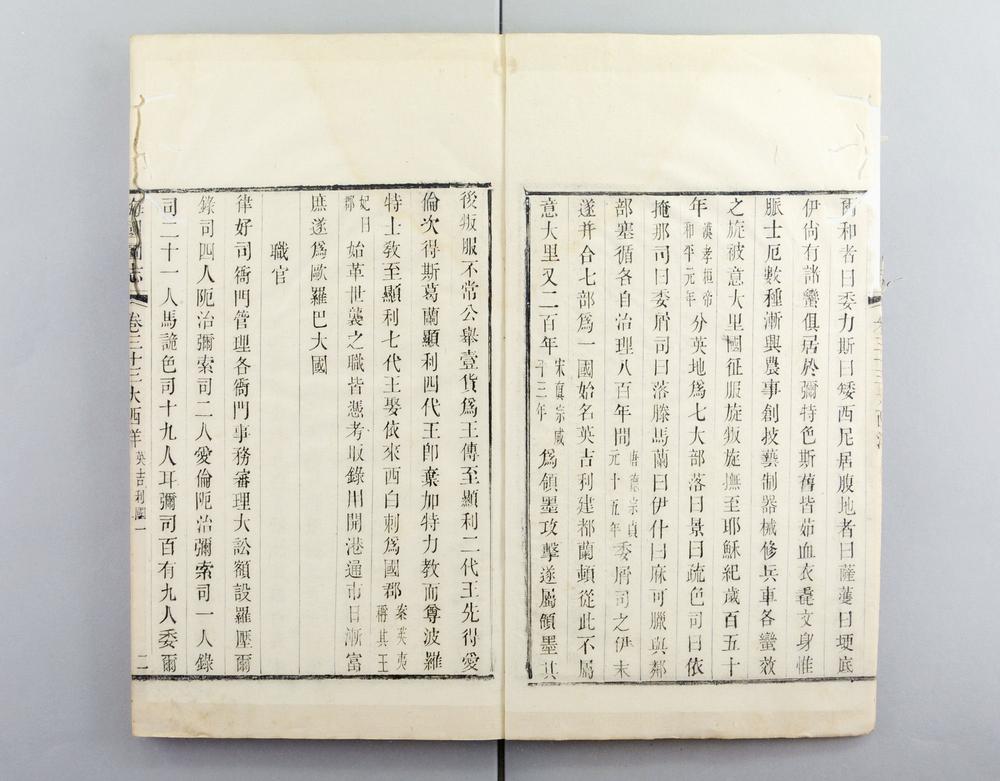 爾和者曰委力斯曰矮西尼居腹地者曰薩濩曰埂底
伊尙有諸蠻俱居於彌特色斯舊皆茹血衣毳文身惟
脈士厄數種漸興農事創技藝制器械修兵車各蠻效
之旋被意大里國征服旋叛旋撫至耶穌紀歲百五十
年漢孝桓帝和平元年分英地爲七大部落曰景曰疏色司曰依
掩那司曰委屑司曰落滕馬蘭曰伊什曰麻可臘與鄰
部塞循各自治理八百年間唐德宗貞元十五年委屑司之伊末
遂并合七部爲一國始名英吉利建都蘭頓從此不屬
意大里又二百年宋眞宗咸平三年爲領墨攻擊遂屬領墨其
後叛服不常公舉壹貨爲王傳至顯利二代王先得愛
倫次得斯葛蘭顯利四代王卽棄加特力教而尊波羅
特士教至顯利七代王娶依來西白刺爲國郡案英夷稱其王
妃曰郡始革世襲之職皆憑考取錄用開港通市日漸富
庶遂爲歐羅巴大國
職官
律好司衙門管理各衙門事務審理大訟額設羅壓爾
錄司四人阨治彌索司二人愛倫阨治彌索司一人錄
司二十一人馬詭色司十九人耳彌司百有九人委爾
海國圖志 卷三十三 大西洋 英吉利國一 二